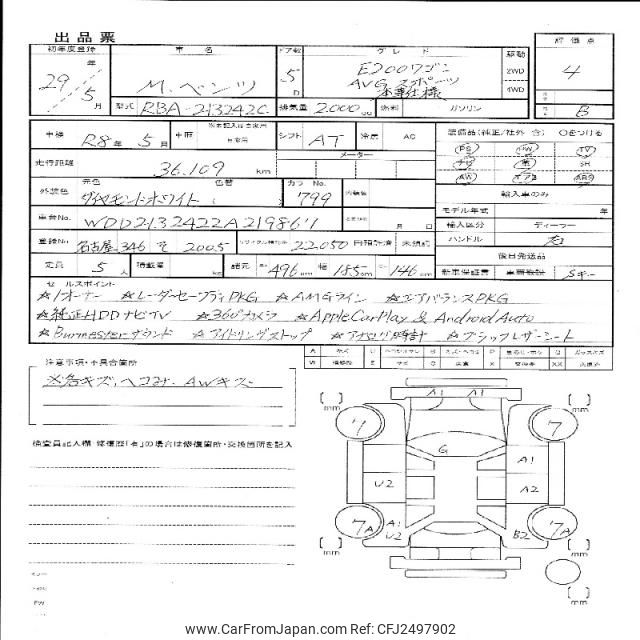 出品票
初年度登録 車名 ドア数 グレード 駆動 評価点
29年 5月 M.ベンツ 5D E200ワゴン AVG スポーツ 本革仕様 2WD 4WD 4
型式 RBA-213242C 排気量 2.000cc 燃料 ガソリン B
車検 R8年 5月 車歴 シフト AT 冷房 AC 装備品(純正/社外 含) Oをつける
メーター PS PW TV
走行距離 36.109 km ナビ 革 SR
元色 色替 カラーNo. AW エアB ABS
外装色 ダイヤモンドホワイト ( 799 内装色 輸入車のみ
車台No. WDD2132422A219861 月 日 モデル年式 年
輸入区分 ディーラー
登録No. 名古屋 346 そ 2005 リサイクル預託金 22.050 円 預託済 未預託 ハンドル 右
後日発送品
定員 5人 積載量 kg 諸元 長 496cm 幅 185cm 高 146cm 新車保証書 車輌取説 Sキー
セールスポイント
☆1オーナー ☆レーダーセーフティPKG ☆AMGライン ☆エアバランスPKG
☆純正HDDナビTV ☆360°カメラ ☆Apple CarPlay & Android Auto
☆Burmesterサウンド ☆アイドリングストップ ☆アナログ時計 ☆ブラックレザーシート
注意事項・不具合箇所
※各キズ、ヘコミ、AWキズ
検査員記入欄 修復歴「有」の場合は修復箇所・交換箇所を記入
[ ] mm A1 A1 [ ] mm
7 7
G A1
U2 A2
7A A1 U2 B2 7A
[ ] mm [ ] mm
[ ] mm
www.CarFromJapan.com # CFJ2497902